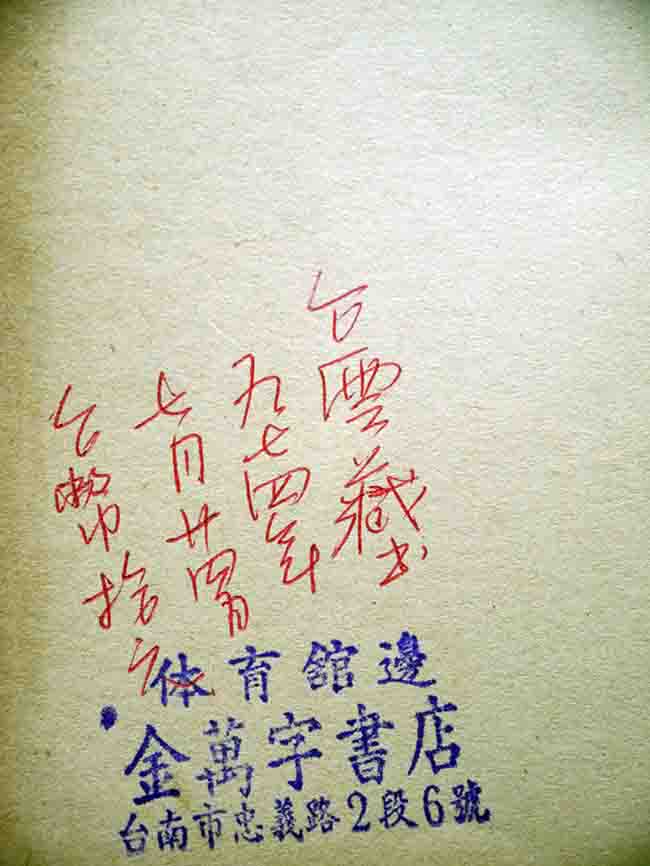 台藏书
九七四年
七月廿四日
台幣拾元
体育舘邊
金萬字書店
台南市忠義路2段6號